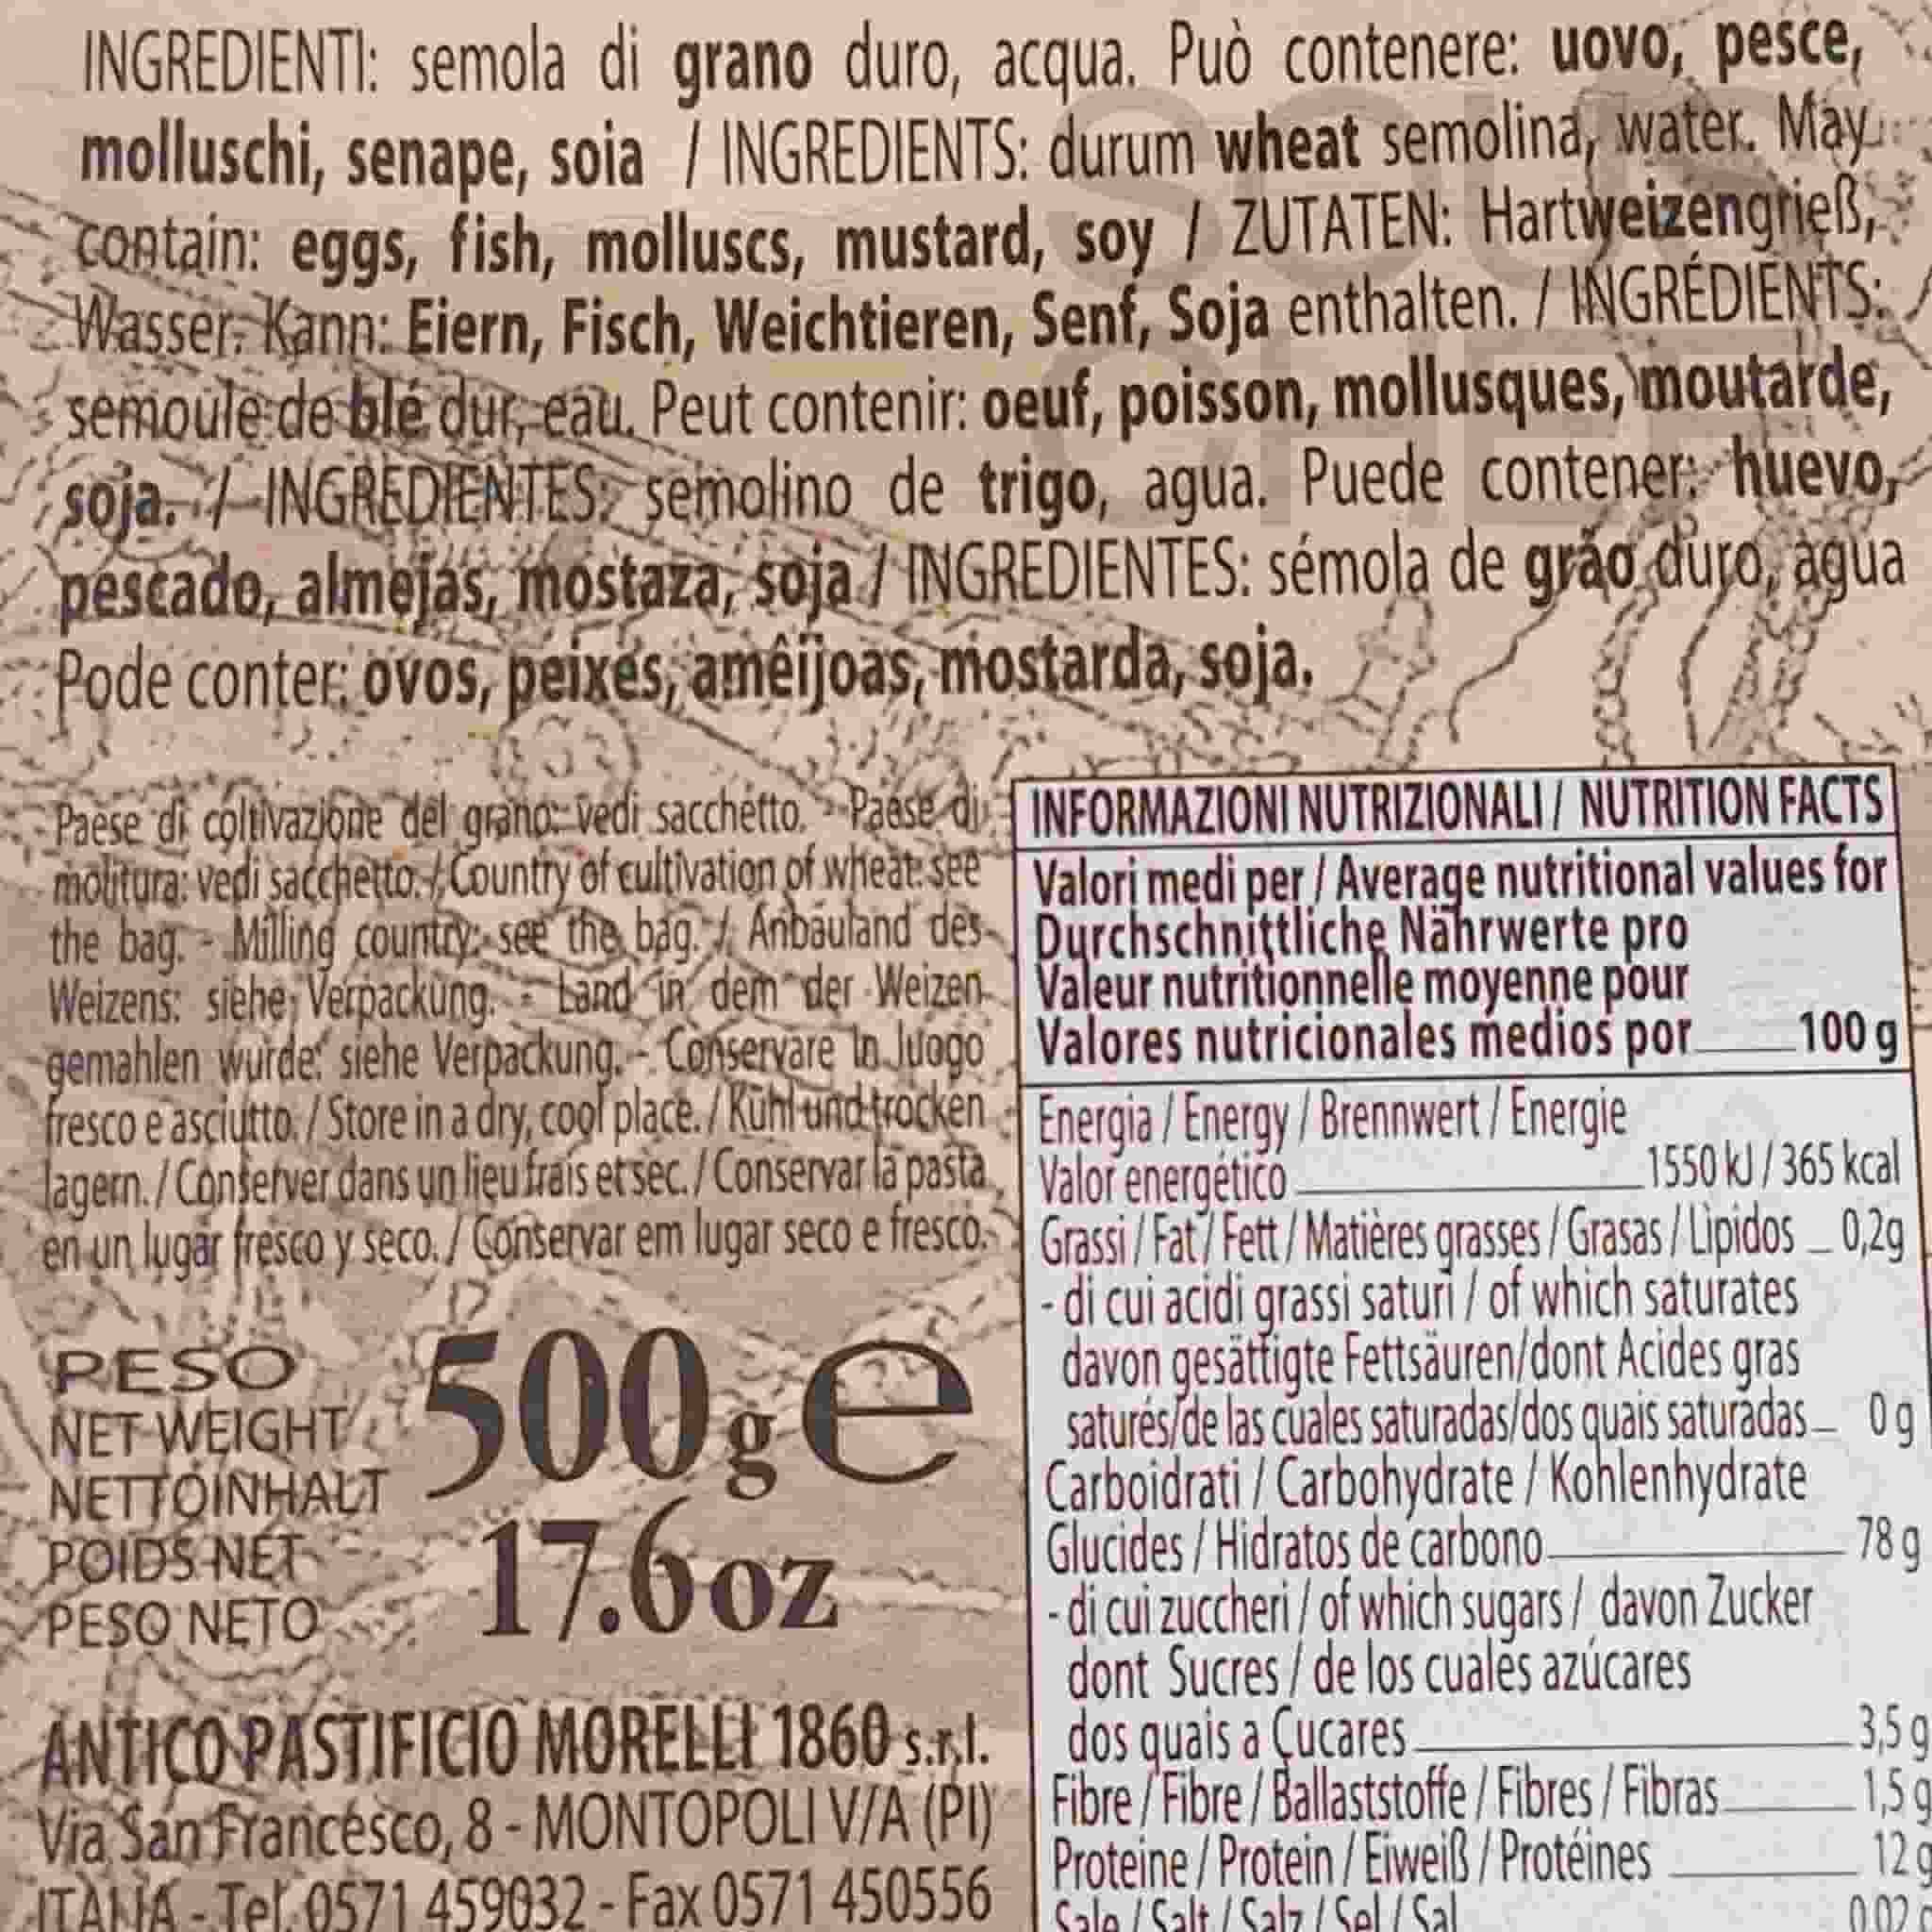 INGREDIENTI: semola di grano duro, acqua. Può contenere: uovo, pesce,
molluschi, senape, soia / INGREDIENTS: durum wheat semolina, water. May
contain: eggs, fish, molluscs, mustard, soy / ZUTATEN: Hartweizengrieß,
Wasser. Kann: Eiern, Fisch, Weichtieren, Senf, Soja enthalten. / INGRÉDIENTS:
semoule de blé dur, eau. Peut contenir: oeuf, poisson, mollusques, moutarde,
soja. / INGREDIENTES: semolino de trigo, agua. Puede contener: huevo,
pescado, almejas, mostaza, soja / INGREDIENTES: sémola de grão duro, agua
Pode conter: ovos, peixes, amêijoas, mostarda, soja.
Paese di coltivazione del grano: vedi sacchetto. - Paese di
molitura: vedi sacchetto. / Country of cultivation of wheat: see
the bag. - Milling country: see the bag. / Anbauland des
Weizens: siehe Verpackung. - Land in dem der Weizen
gemahlen wurde: siehe Verpackung. - Conservare in luogo
fresco e asciutto. / Store in a dry, cool place. / Kühl und trocken
lagern. / Conserver dans un lieu frais et sec. / Conservar la pasta
en un lugar fresco y seco. / Conservar em lugar seco e fresco.
PESO
NET WEIGHT
NETTOINHALT
POIDS NET
PESO NETO
500g e
17.6oz
ANTICO PASTIFICIO MORELLI 1860 s.r.l.
Via San Francesco, 8 - MONTOPOLI V/A (PI)
ITALIA - Tel. 0571 459032 - Fax 0571 450556
INFORMAZIONI NUTRIZIONALI / NUTRITION FACTS
Valori medi per / Average nutritional values for
Durchschnittliche Nährwerte pro
Valeur nutritionnelle moyenne pour
Valores nutricionales medios por 100 g
Energia / Energy / Brennwert / Energie
Valor energético 1550 kJ / 365 kcal
Grassi / Fat / Fett / Matières grasses / Grasas / Lìpidos 0,2g
- di cui acidi grassi saturi / of which saturates
davon gesättigte Fettsäuren/dont Acides gras
saturés/de las cuales saturadas/dos quais saturadas 0 g
Carboidrati / Carbohydrate / Kohlenhydrate
Glucides / Hidratos de carbono 78 g
- di cui zuccheri / of which sugars / davon Zucker
dont Sucres / de los cuales azúcares
dos quais a Çucares 3,5 g
Fibre / Fibre / Ballaststoffe / Fibres / Fibras 1,5 g
Proteine / Protein / Eiweiß / Protéines 12 g
Sale / Salt / Salz / Sel / Sal 0,02